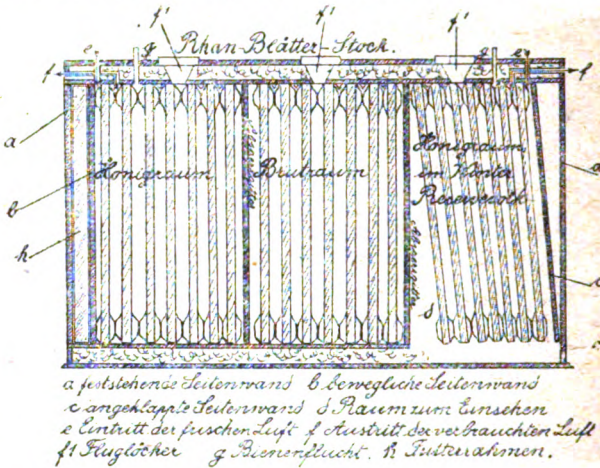 f¹ f¹ f¹
e g Rhan-Blätter-Stock. g e
f f
a
a
Honigraum Brutraum Honigraum
b im Winter
Reservevolk
h
c
d
a feststehende Seitenwand b bewegliche Seitenwand
c angeklappte Seitenwand d Raum zum Einsehen
e Eintritt der frischen Luft f Austritt der verbrauchten Luft
f1 Fluglöcher g Bienenflucht. h Futterrahmen.